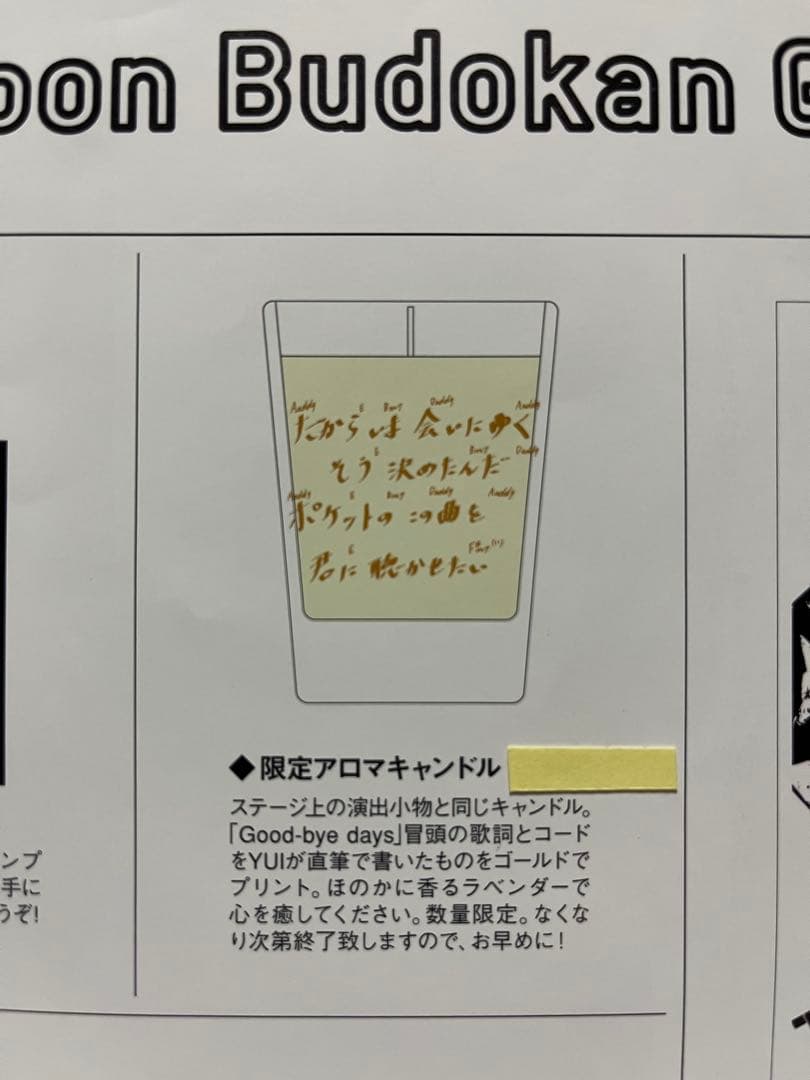 oon Budokan G
Aadd9 E Bm7 Dadd9 Aadd9
だから いま 会いにゆく
E Bm7 Dadd9
そう 決めたんだ
Aadd9 E Bm7 Dadd9 Aadd9
ポケットの この曲を
E F#m7(11)
君に 聴かせたい
◆限定アロマキャンドル
ステージ上の演出小物と同じキャンドル。
「Good-bye days」冒頭の歌詞とコード
をYUIが直筆で書いたものをゴールドで
プリント。ほのかに香るラベンダーで
心を癒してください。数量限定。なくな
り次第終了致しますので、お早めに!
ンプ
手に
うぞ!